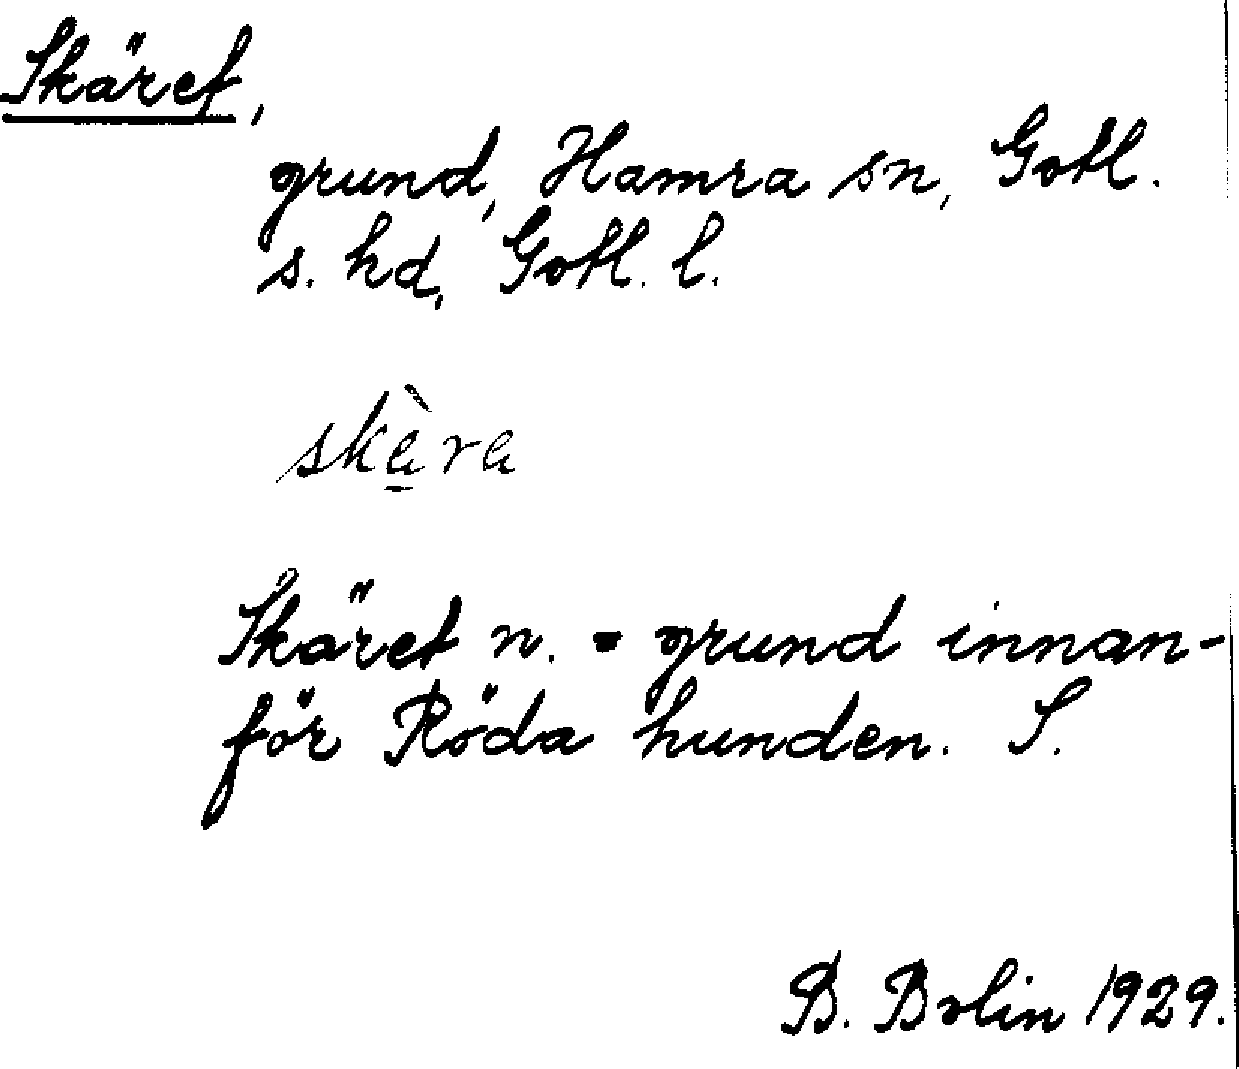 Skäret,
grund, Hamra sn, Gotl.
s. hd, Gotl. l.
skära
Skäret n. = grund innan-
för Röda hunden. S.
B. Bolin 1929.